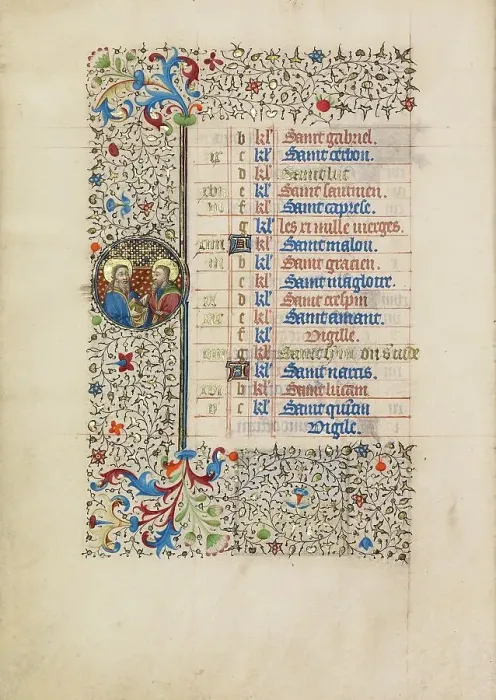 b kl' Saint gabriel.
ix c kl' Saint cerbon.
d kl' Saint luc
xvii e kl' Saint saninien.
vi f kl' Saint caprese.
g kl' les xi mille vierges.
xiiii A kl' Saint malou.
iii b kl' Saint gracien.
c kl' Saint magloire.
xi d kl' Saint crespin
xix e kl' Saint amant.
f kl' Vigille.
viii g kl' Saint symon s iude
A kl' Saint narcis.
xvi b kl' Saint lucain
v c kl' Saint quitin
Vigile.